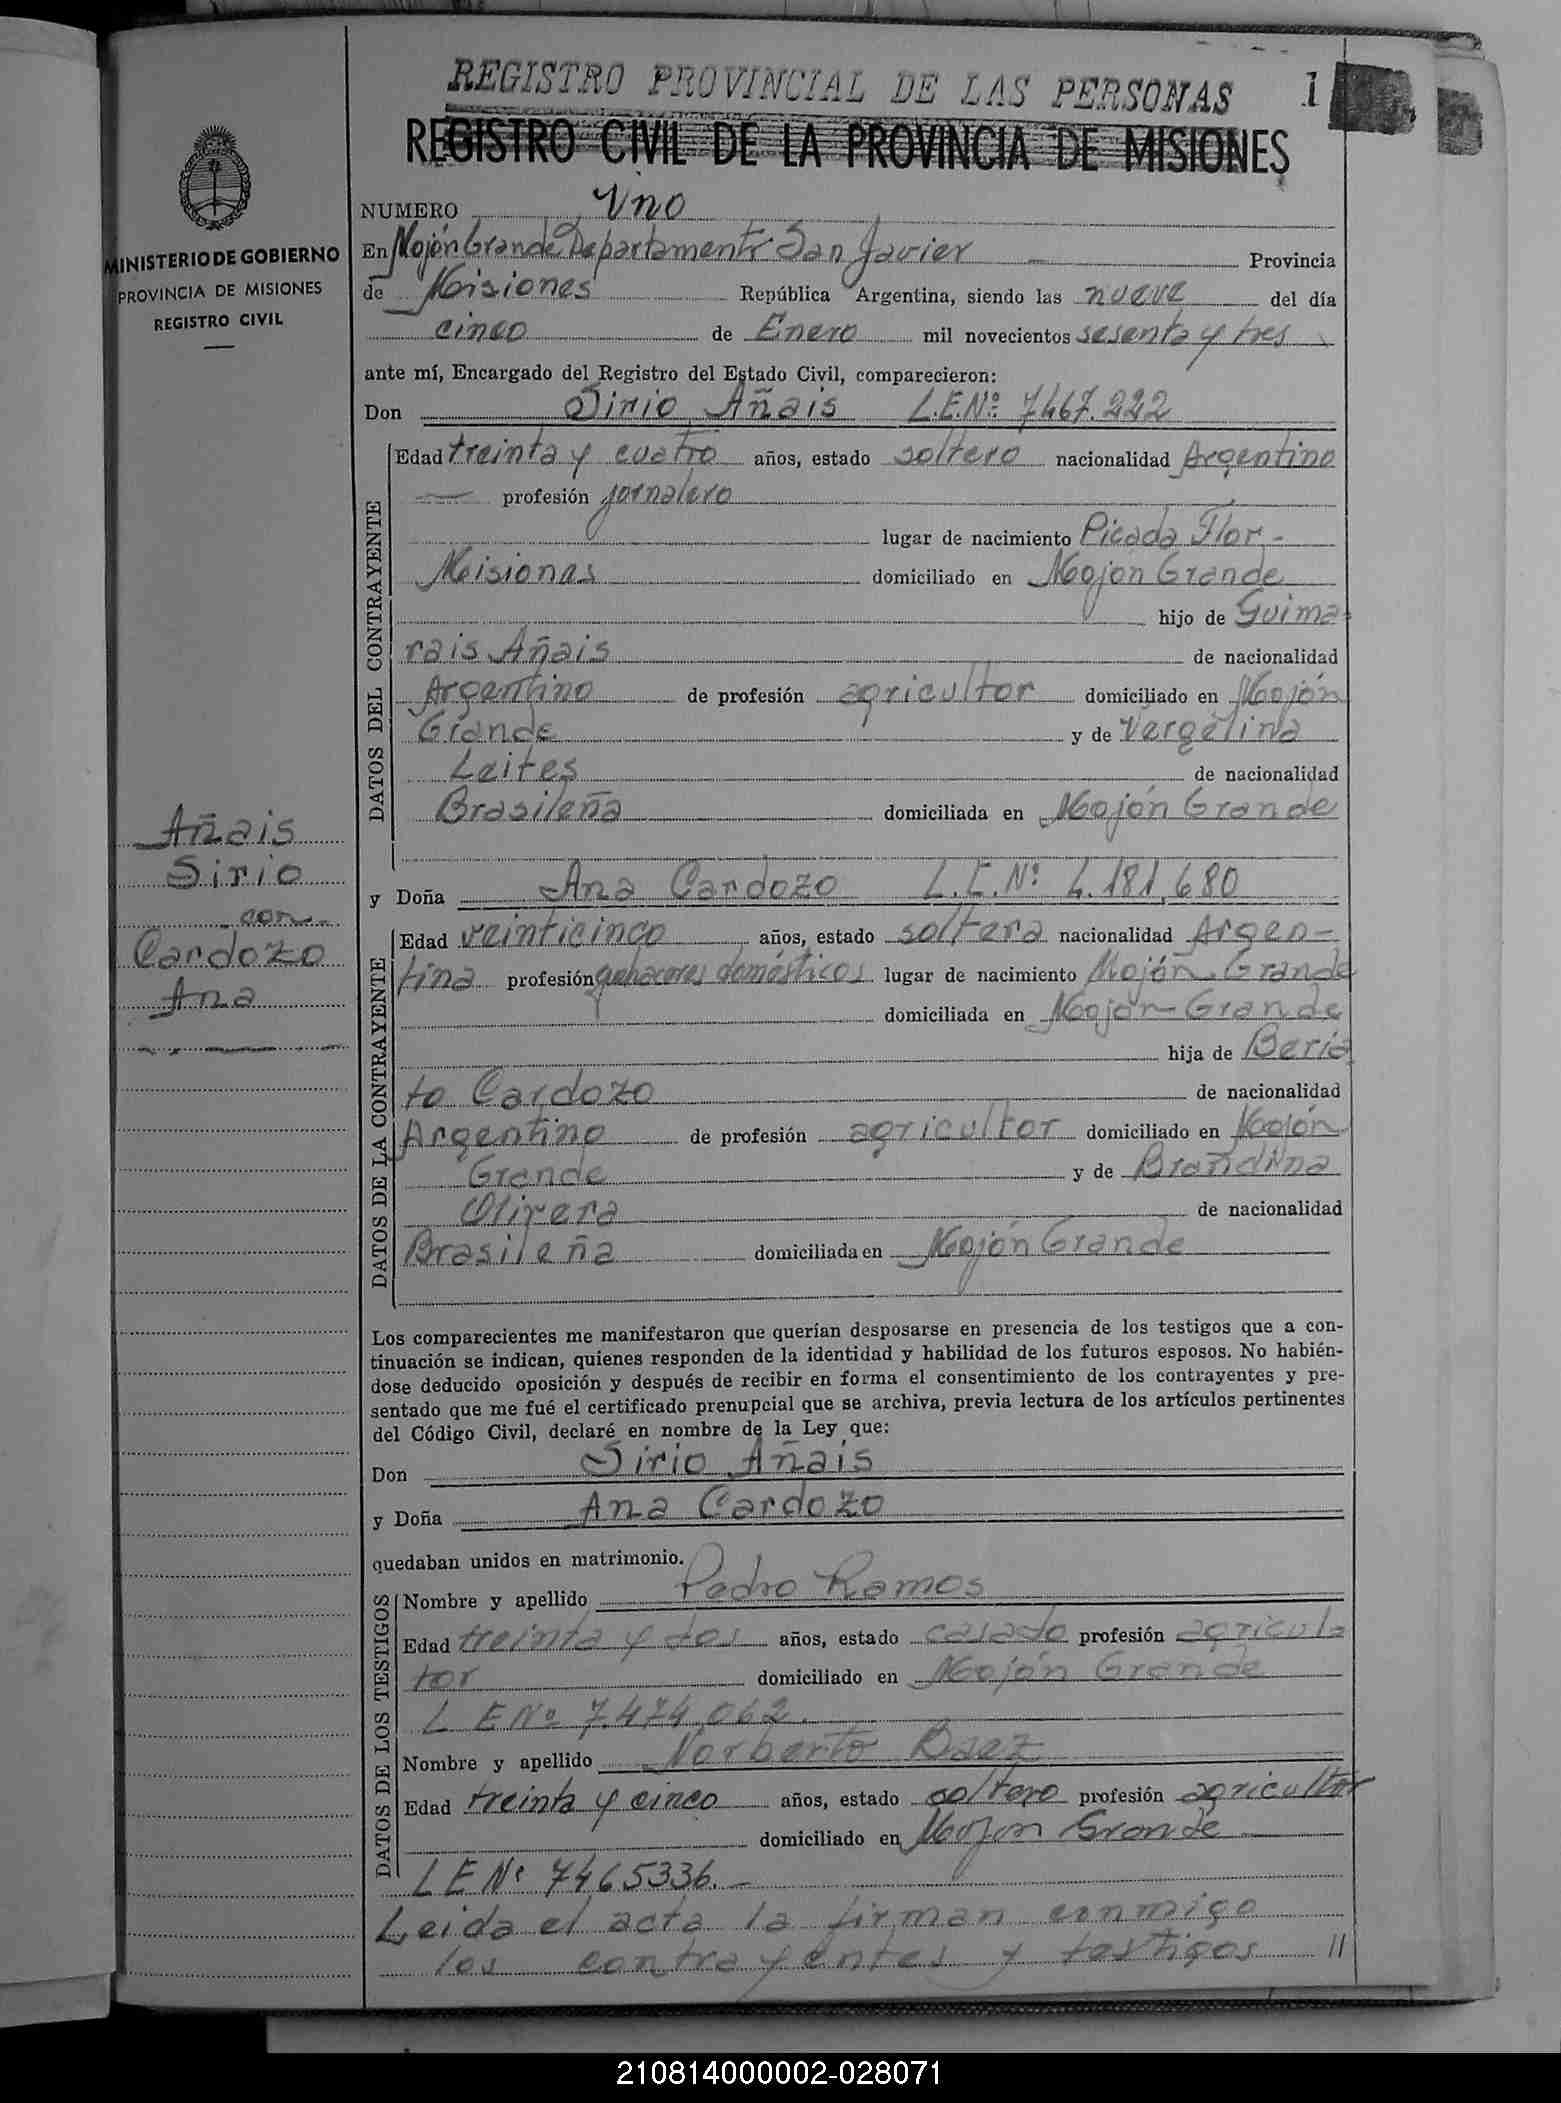 REGISTRO PROVINCIAL DE LAS PERSONAS 1
REGISTRO CIVIL DE LA PROVINCIA DE MISIONES
MINISTERIO DE GOBIERNO
PROVINCIA DE MISIONES
REGISTRO CIVIL
NUMERO Uno
En Mojón Grande Departamento San Javier Provincia
de Misiones República Argentina, siendo las nueve del día
cinco de Enero mil novecientos sesenta y tres
ante mí, Encargado del Registro del Estado Civil, comparecieron:
Don Sirio Añais L.E.Nº 7467.222
DATOS DEL CONTRAYENTE
Edad treinta y cuatro años, estado soltero nacionalidad Argentino
profesión jornalero
lugar de nacimiento Picada Flor-
Misiones domiciliado en Mojon Grande
hijo de Guima-
rais Añais de nacionalidad
Argentino de profesión agricultor domiciliado en Mojón
Grande y de Vergelina
Leites de nacionalidad
Brasileña domiciliada en Mojón Grande
Añais
Sirio
con
Cardozo
Ana
y Doña Ana Cardozo L.C.Nº 4.181,680
DATOS DE LA CONTRAYENTE
Edad veinticinco años, estado soltera nacionalidad Argen-
tina profesión quehaceres domésticos lugar de nacimiento Mojón Grande
domiciliada en Mojón Grande
hija de Beria
to Cardozo de nacionalidad
Argentino de profesión agricultor domiciliado en Mojón
Grande y de Brandina
Olivera de nacionalidad
Brasileña domiciliada en Mojón Grande
Los comparecientes me manifestaron que querían desposarse en presencia de los testigos que a con-
tinuación se indican, quienes responden de la identidad y habilidad de los futuros esposos. No habién-
dose deducido oposición y después de recibir en forma el consentimiento de los contrayentes y pre-
sentado que me fué el certificado prenupcial que se archiva, previa lectura de los artículos pertinentes
del Código Civil, declaré en nombre de la Ley que:
Don Sirio Añais
y Doña Ana Cardozo
quedaban unidos en matrimonio.
DATOS DE LOS TESTIGOS
Nombre y apellido Pedro Ramos
Edad treinta y dos años, estado casado profesión agricul-
tor domiciliado en Mojón Grande
L E Nº 7.474.062.
Nombre y apellido Norberto Baez
Edad treinta y cinco años, estado soltero profesión agricultor
domiciliado en Mojon Grande
L E Nº 7465336.-
Leida el acta la firman conmigo
los contrayentes y testigos //
210814000002-028071